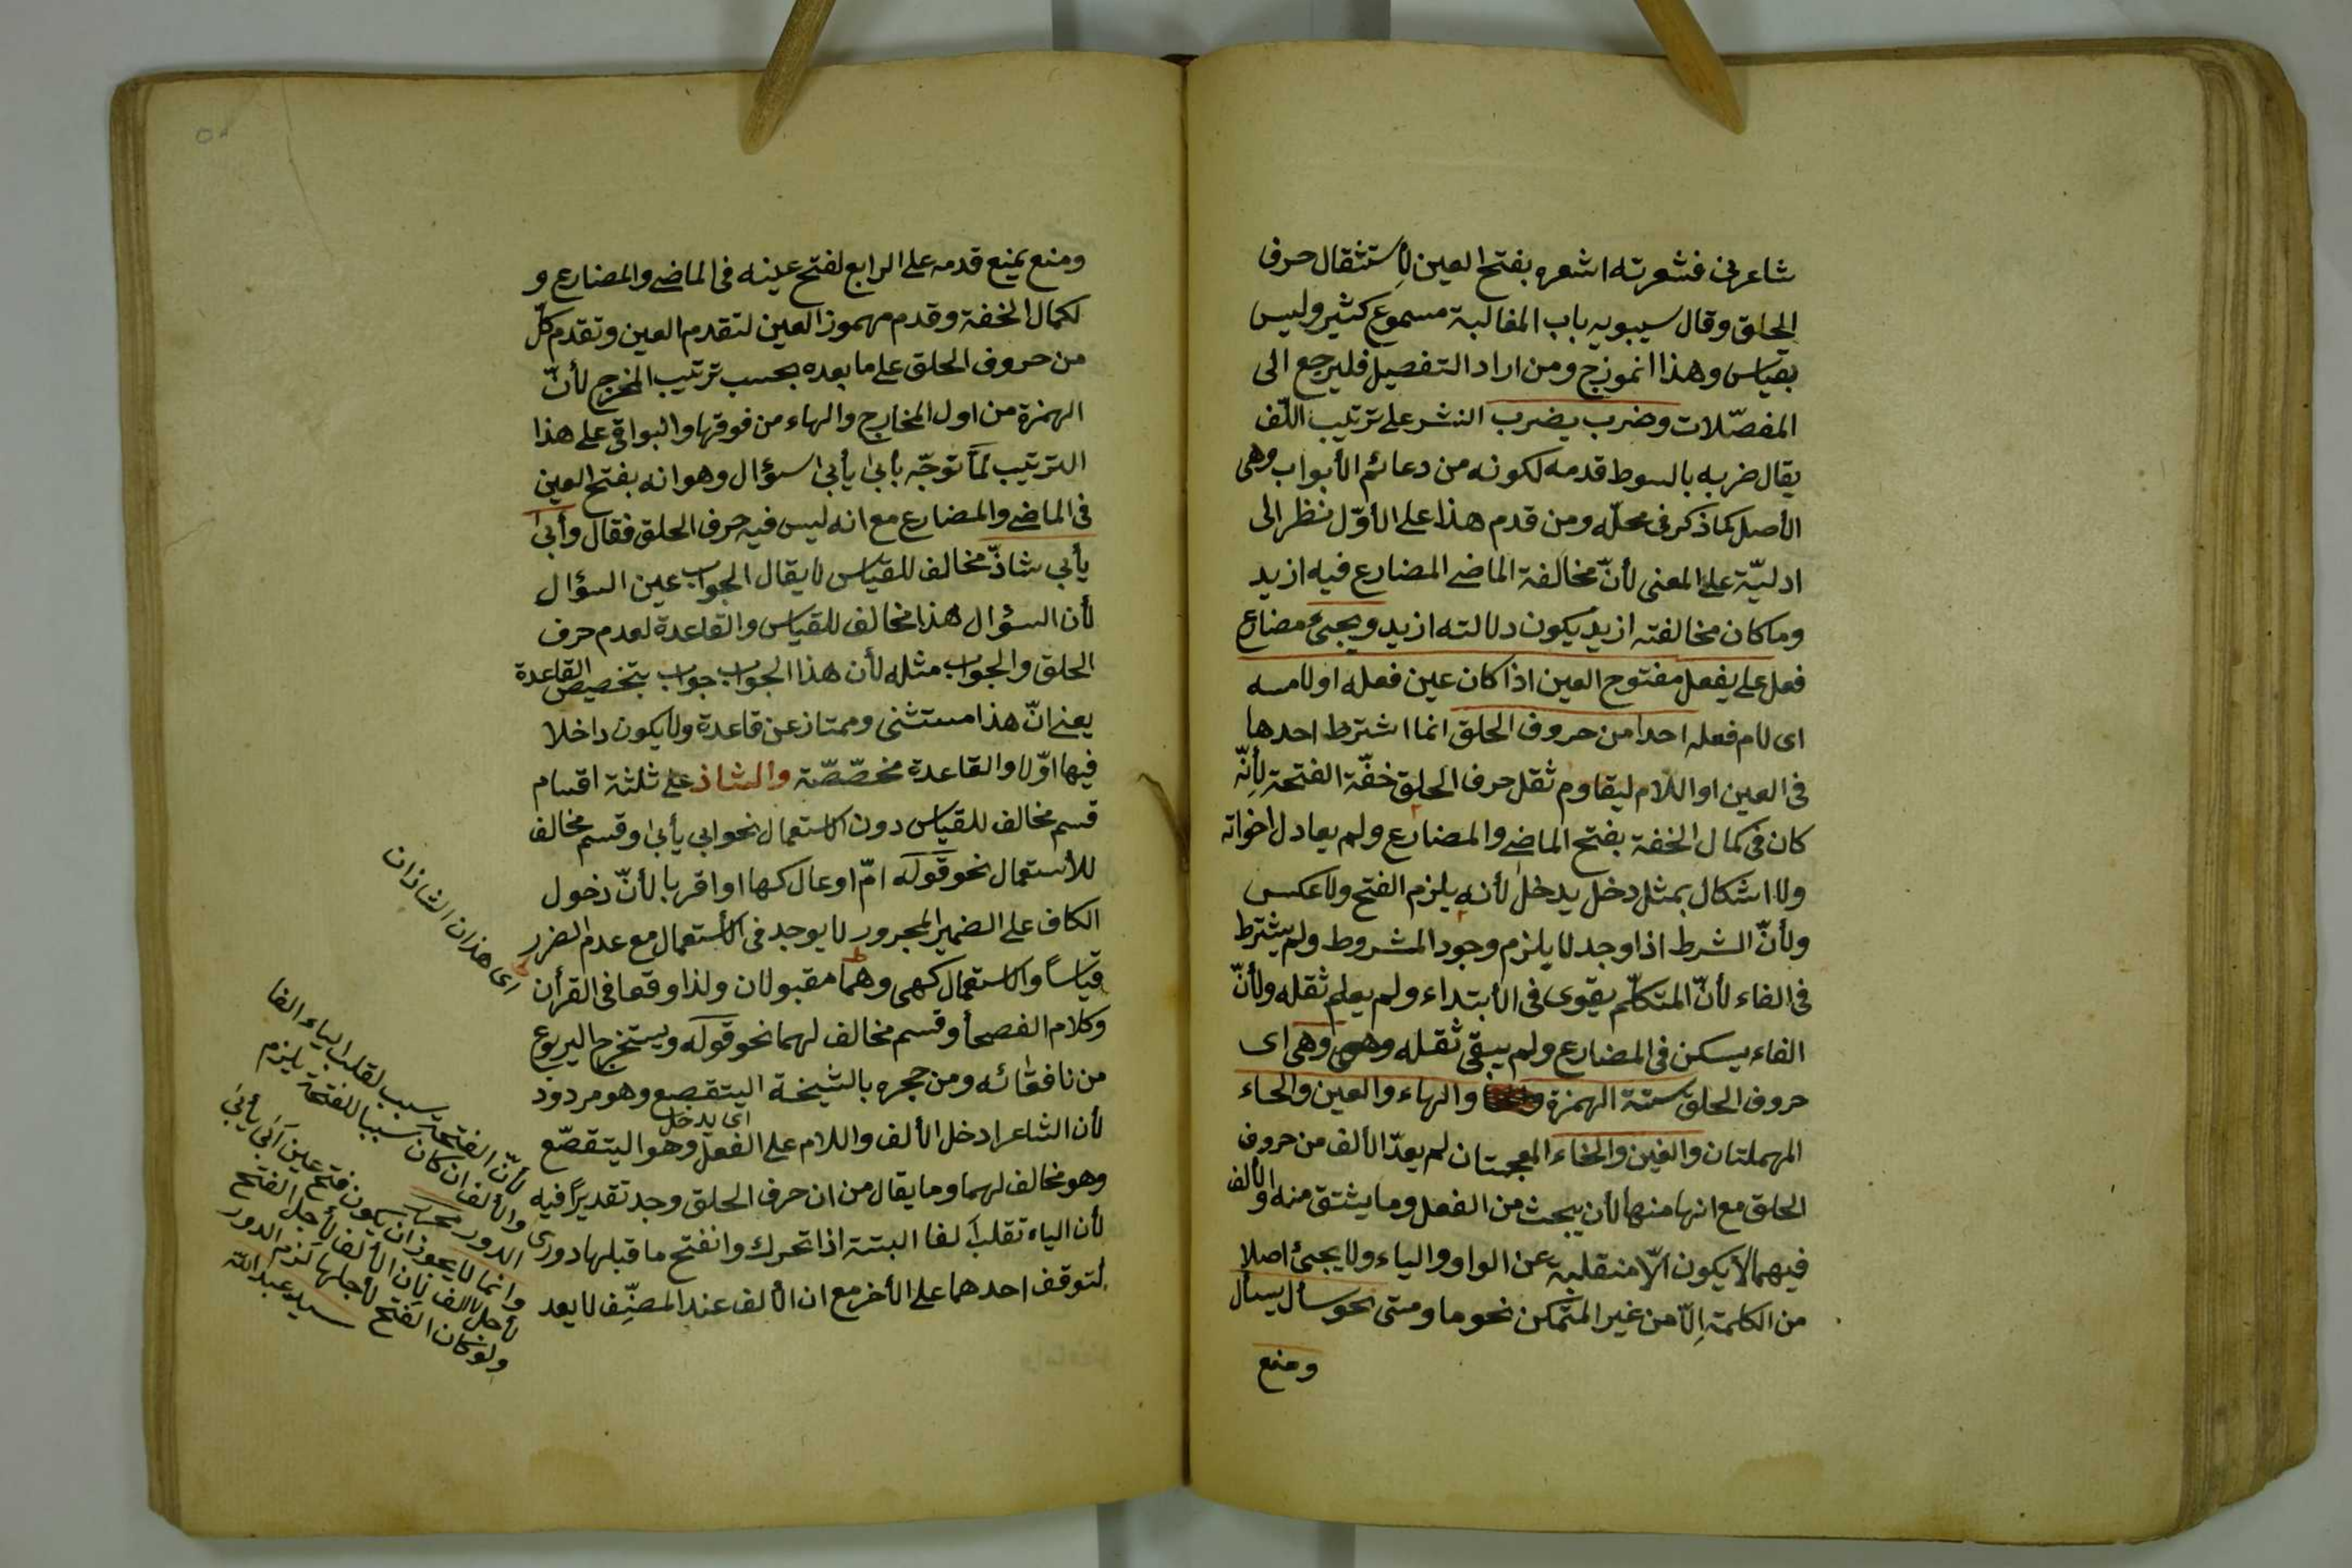 شاعرنى فشعرته اشعره بفتح العين لأستثقال حرف
الحلق وقال سيبويه باب المغالبة مسموع كثير وليس
بقياس وهذا انموزج ومن اراد التفصيل فليرجع الى
المفصّلات وضرب يضرب النشر على ترتيب اللّف
يقال ضربه بالسوط قدمه لكونه من دعائم الأبواب وهى
الأصل كما ذكر فى محلّه ومن قدم هذا على الأوّل نظر الى
ادليّة على المعنى لأنّ مخالفة الماضى المضارع فيه ازيد
وما كان مخالفته ازيد يكون دلالته ازيد ويجئ مضارع
فعل على يفعل مفتوح العين اذا كان عين فعله او لامه
اى لام فعله احدا من حروف الحلق انما اشترط احدها
فى العين او اللام ليقاوم ثقل حرف الحلق خفّة الفتحة لأنّه
كان فى كمال الخفة بفتح الماضى والمضارع ولم يعادل اخواته
ولا اشكال بمثل دخل يدخل لأنه يلزم الفتح ولا عكس
ولأنّ الشرط اذا وجد لا يلزم وجود المشروط ولم يشترط
فى الفاء لأنّ المتكلّم يقوى فى الأبتداء ولم يعلم ثقله ولأنّ
الفاء يسكن فى المضارع ولم يبقى ثقله وهى وهى اى
حروف الحلق ستة الهمزة والهاء والعين والحاء
المهملتان والغين والخاء المعجمتان لم يعدّ الألف من حروف
الحلق مع انها منها لأن يبحث من الفعل وما يشتق منه والألف
فيهما لا يكون الّا منقلبة عن الواو والياء ولا يجئ اصلا
من الكلمة الّا من غير المتمكن نحو ما ومتى نحو سأل يسأل
ومنع
ومنع يمنع قدمه على الرابع لفتح عينه فى الماضى والمضارع و
لكمال الخفة وقدم مهموز العين لتقدم العين وتقدم كلّ
من حروف الحلق على ما بعده بحسب ترتيب المخرج لأنّ
الهمزة من اول المخارج والهاء من فوقها والبواقى على هذا
الترتيب لمّا توجّه بأبى يأبى سؤال وهو انه بفتح العين
فى الماضى والمضارع مع انه ليس فيه حرف الحلق فقال وأبى
يأبى شاذّ مخالف للقياس لا يقال الجواب عين السؤال
لأن السؤال هذا مخالف للقياس والقاعدة لعدم حرف
الحلق والجواب مثله لأن هذا الجواب جواب بتخصيص القاعدة
يعنى انّ هذا مستثنى وممتاز عن قاعدة ولا يكون داخلا
فيها اوّلا والقاعدة مخصّصّة والشاذ على ثلثة اقسام
قسم مخالف للقياس دون الاستعمال نحو ابى يأبى وقسم مخالف
للأستعمال نحو قوله امّ اوعال كها او اقربا لأنّ دخول
الكاف على الضمير المجرور لا يوجد فى الأستعمال مع عدم الضرر
قياسًا والاستعمال كهى وهما مقبولان ولذا وقعا فى القرأن
وكلام الفصحأ وقسم مخالف لهما نحو قوله ويستخرج اليربوع
من نافقائه ومن جحره بالشيخة اليتقصع وهو مردود
لأن الشاعر ادخل الألف واللام على الفعل وهو اليتقصّع
اى يدخل
وهو مخالف لهما وما يقال من ان حرف الحلق وجد تقديرًا فيه
لأن الياء تقلب الفا البتة اذا تحرك وانفتح ما قبلها دورى
لتوقف احدهما على الأخر مع ان الألف عند المصنّف لا يعد
اى هذان الشاذان
لأنّ الفتحة سبب لقلب الياء الفا
والألف ان كان سببا للفتحة يلزم
الدور
وانما لا يجوز ان يكون فتح عين أبى يأبى
لأجل الالف لأن الألف لأجل الفتح
ولو كان الفتح لأجلها لزم الدور
سيد عبد الله